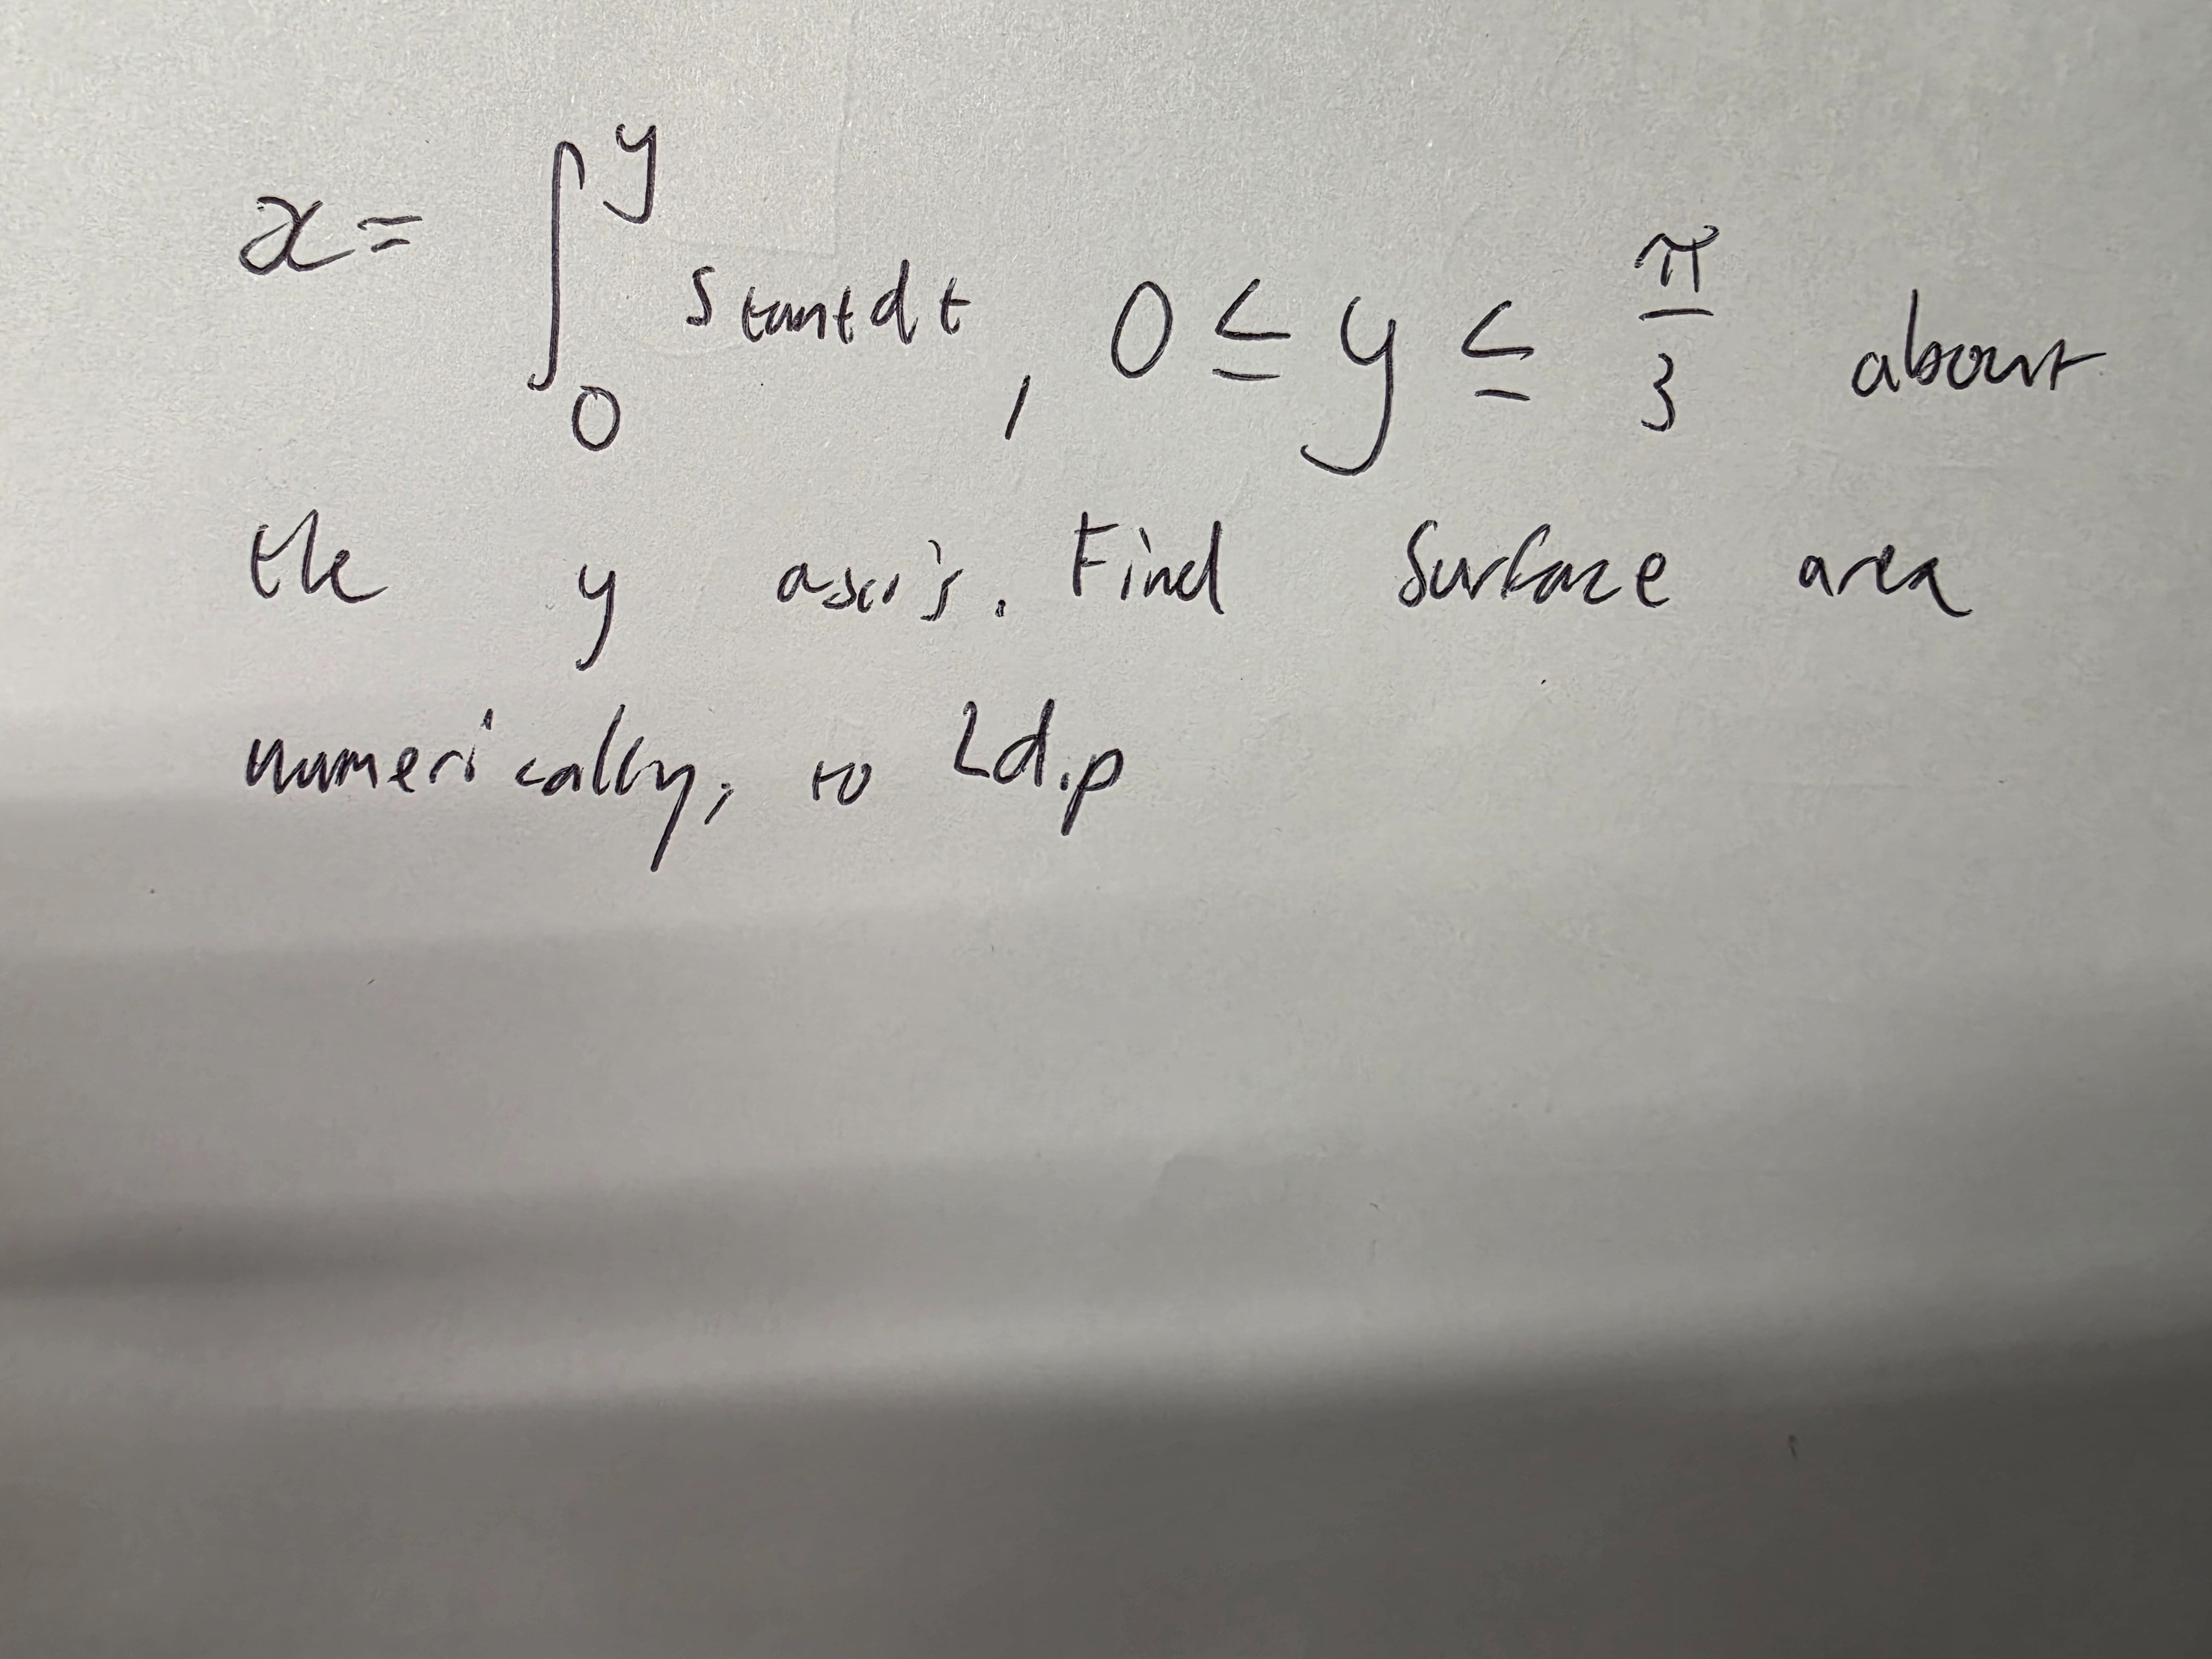 x = ∫₀^y 5 tant dt, 0 ≤ y ≤ π/3 about
the y axis. Find surface area
numerically, to 2d.p